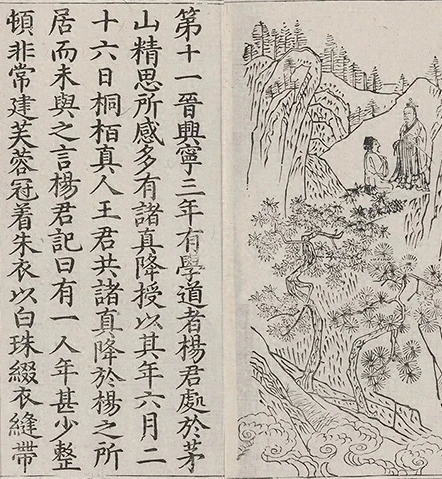 第十一晉興寧三年有學道者楊君處於茅
山精思所感多有諸真降授以其年六月二
十六日桐栢真人王君共諸真降於楊之所
居而未與之言楊君記曰有一人年甚少整
頓非常建芙蓉冠着朱衣以白珠綴衣縫帶